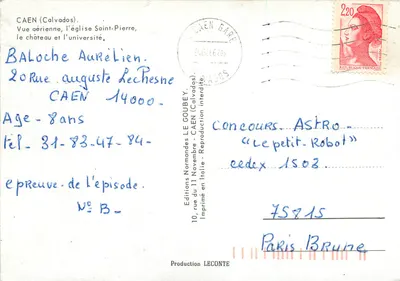 CAEN (Calvados).
Vue aérienne, l'église Saint-Pierre,
le château et l'université.
BALoche Aurélien.
20 Rue auguste LeChesne
CAEN 14000-
Age - 8 ans
tel - 31-83-47-84-
epreuve - de l'épisode.
N° B_
Editions Normandes LE GOUBEY,
10, rue du 11 Novembre - CAEN (Calvados)
Imprimé en Italie - Reproduction interdite.
CAEN GARE
2,20
CONCOURS ASTRO-
"Le petit-Robot"
Cedex 1503
75815
Paris Brune
Production LECONTE